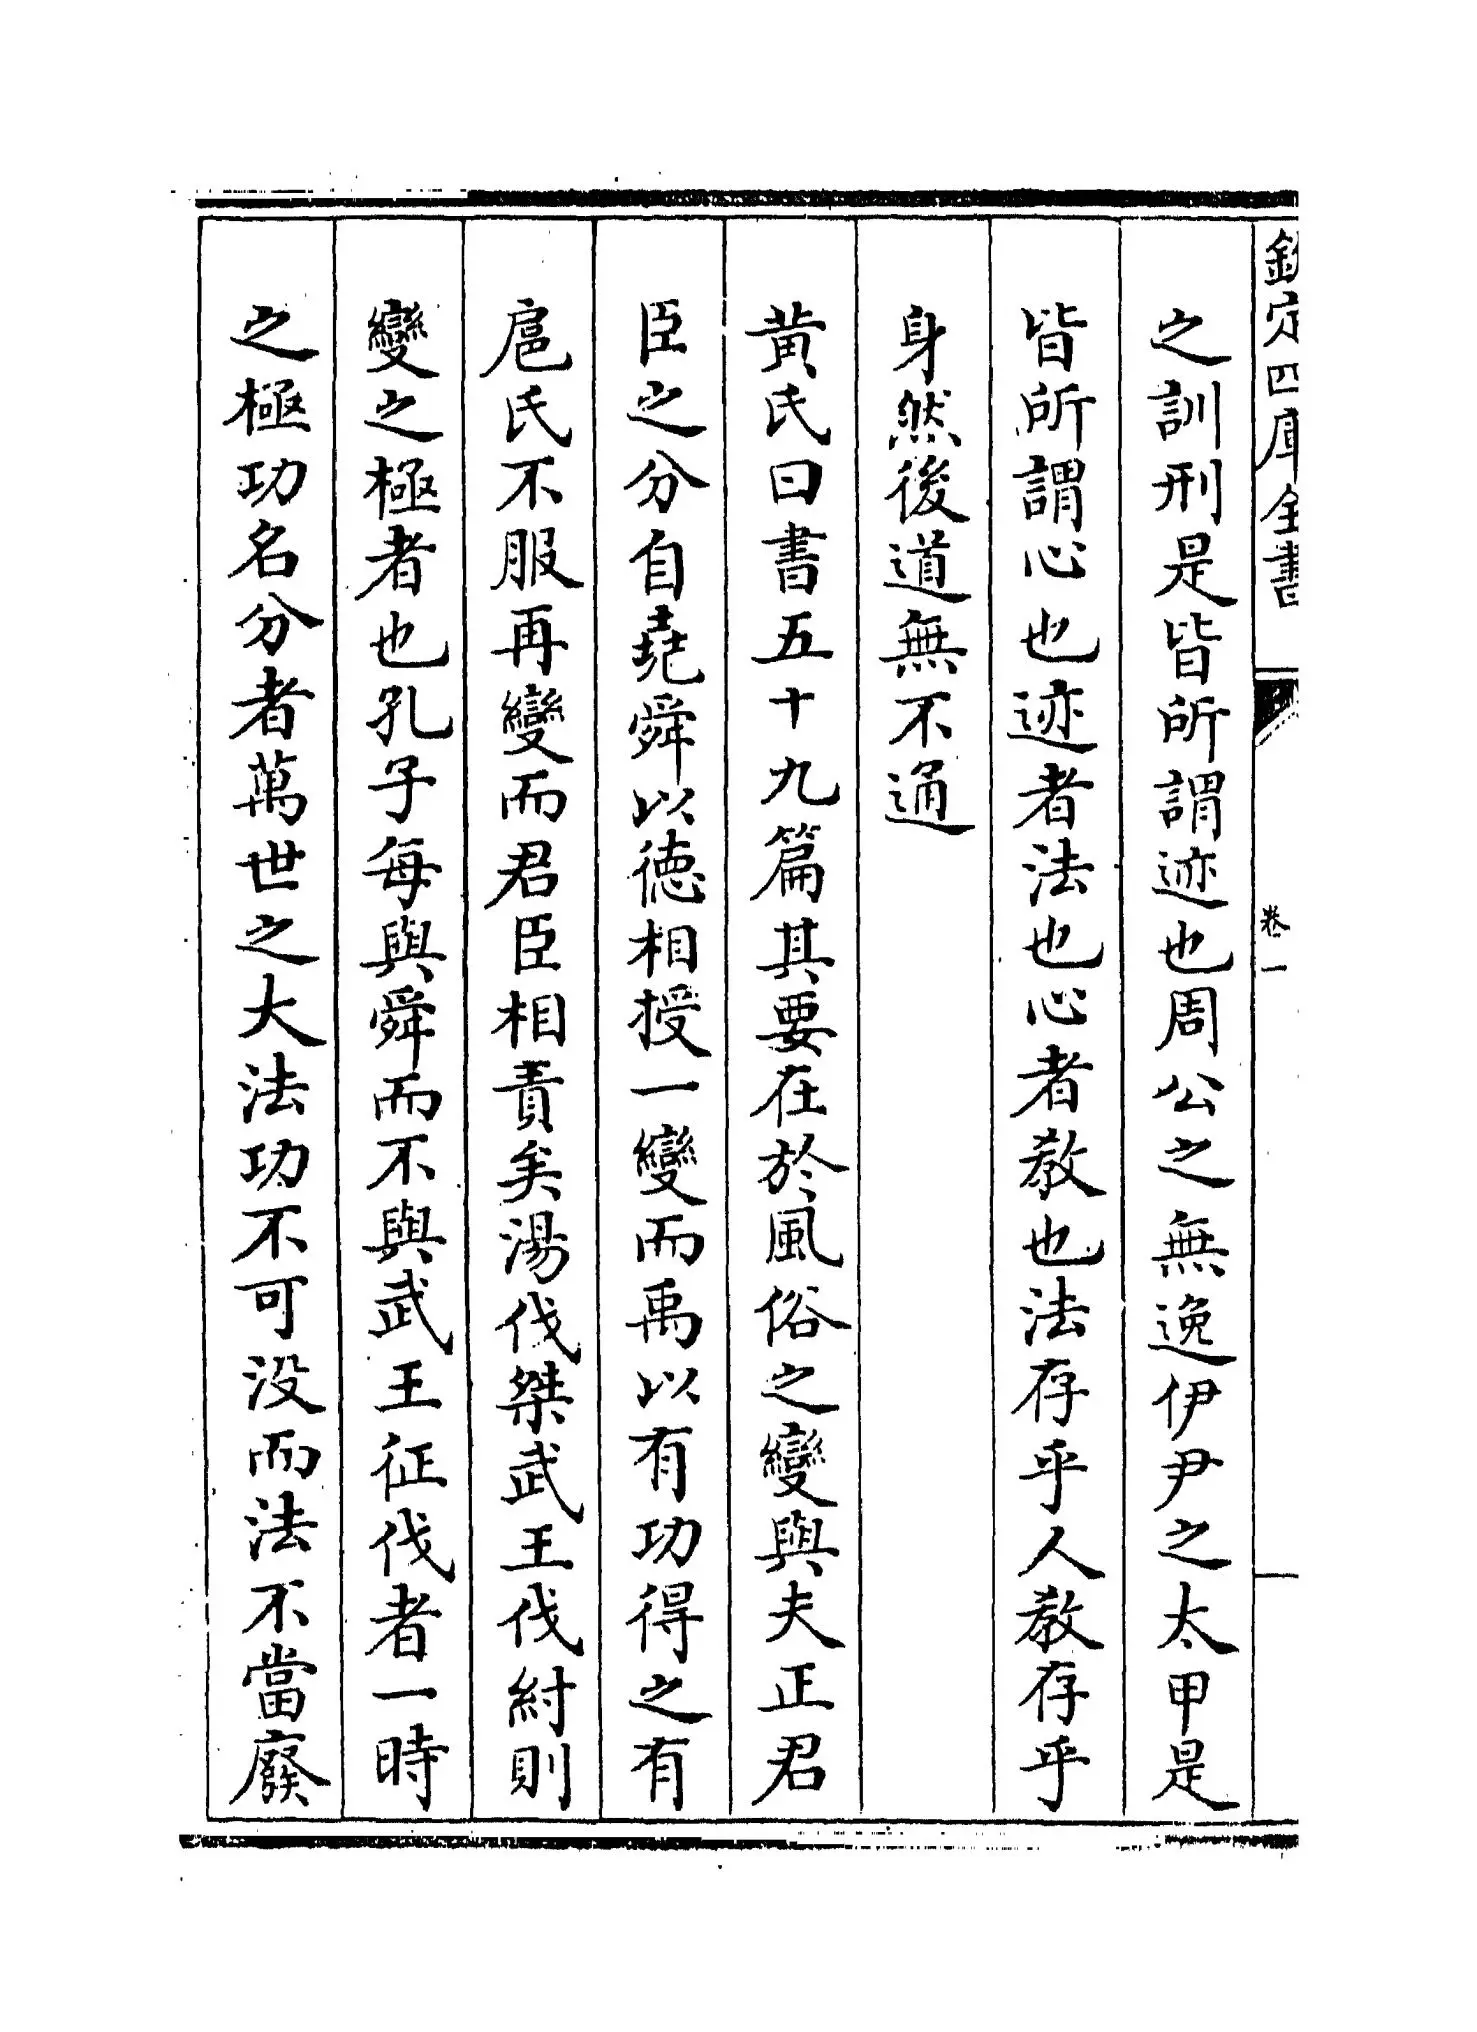 欽定四庫全書
卷一
之訓刑是皆所謂迹也周公之無逸伊尹之太甲是
皆所謂心也迹者法也心者教也法存乎人教存乎
身然後道無不通
黄氏曰書五十九篇其要在於風俗之變與夫正君
臣之分自堯舜以德相授一變而禹以有功得之有
扈氏不服再變而君臣相責矣湯伐桀武王伐紂則
變之極者也孔子每與舜而不與武王征伐者一時
之極功名分者萬世之大法功不可没而法不當廢